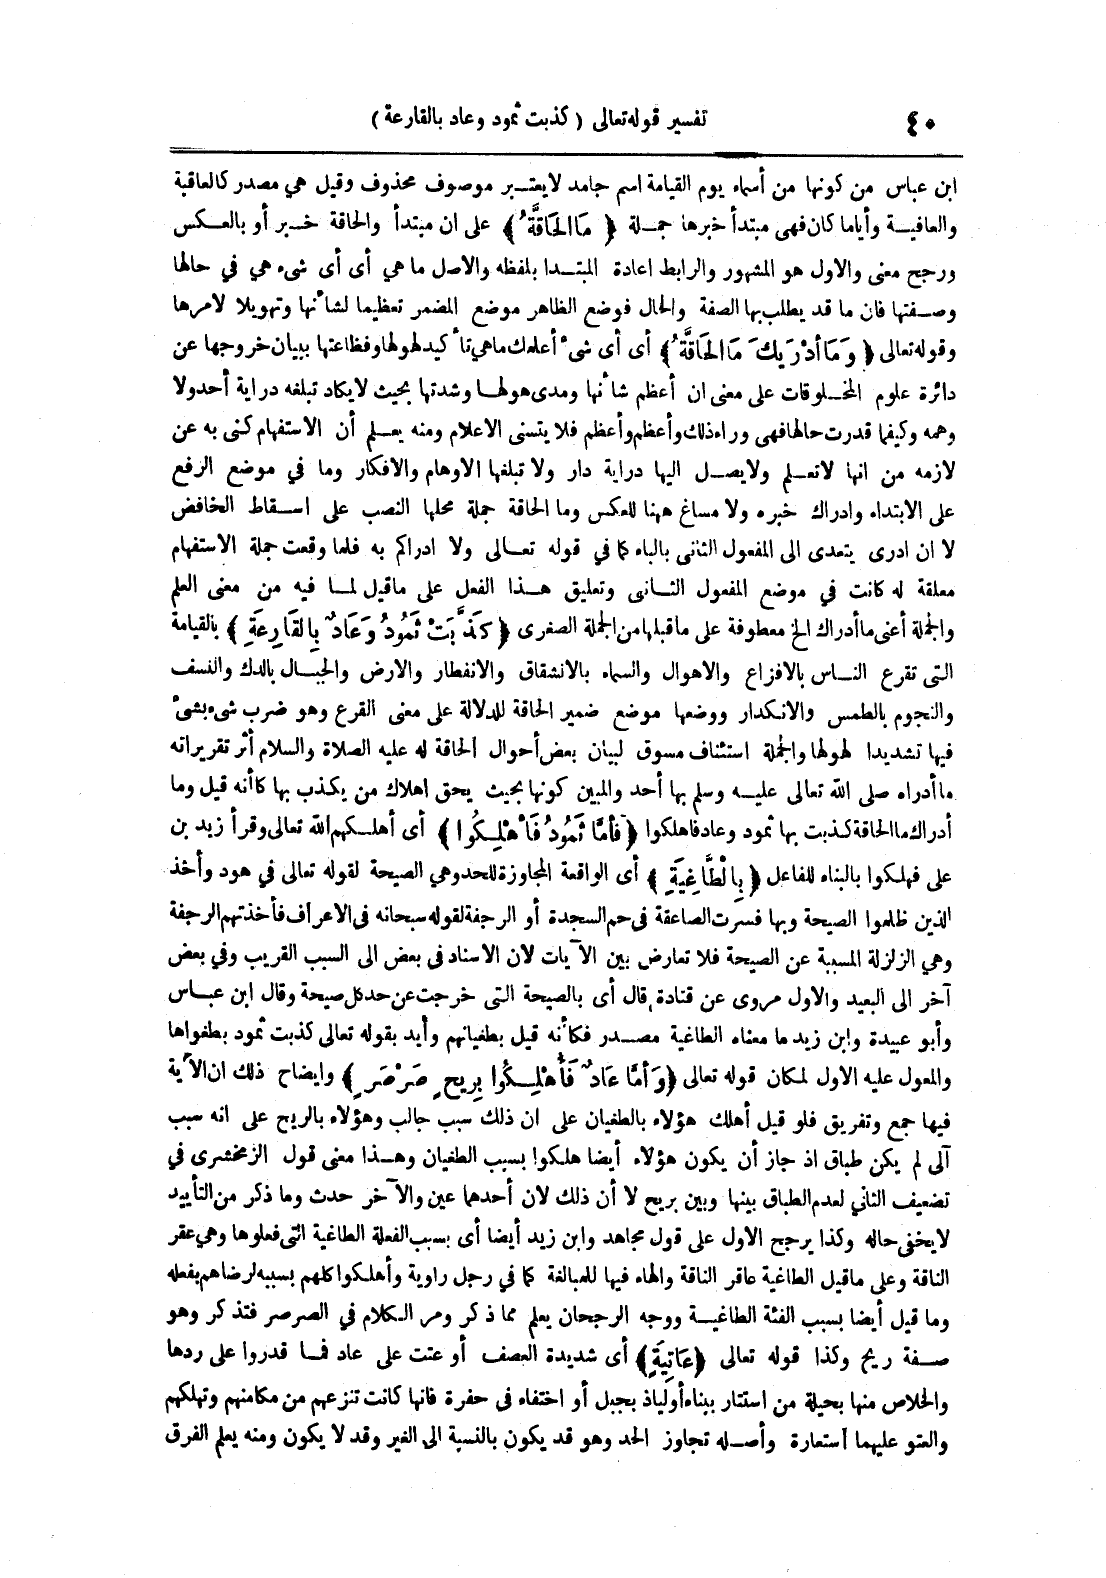 ٤٠
تفسير قوله تعالى ( كذبت ثمود وعاد بالقارعة )
ابن عباس من كونها من أسماء يوم القيامة اسم جامد لا يعتبر موصوف محذوف وقيل هي مصدر كالعاقبة
والعافية وأياما كان فهى مبتدأ خبرها جملة ﴿ مَا الحَاقَّةُ ﴾ على ان مبتدأ والحاقة خبر أو بالعكس
ورجح معنى والاول هو المشهور والرابط اعادة المبتدا بلفظه والاصل ما هي أى أى شىء هي في حالها
وصفتها فان ما قد يطلب بها الصفة والحال فوضع الظاهر موضع المضمر تعظيما لشأنها وتهويلا لامرها
وقوله تعالى ﴿ وَمَا أدْرَيكَ مَا الحَاقَّةُ ﴾ أى أى شىء أعلمك ماهي تأكيد لهولها وفظاعتها ببيان خروجها عن
دائرة علوم المخلوقات على معنى ان أعظم شأنها ومدى هولها وشدتها بحيث لا يكاد تبلغه دراية أحد ولا
وهمه وكيفما قدرت حالها فهى وراء ذلك وأعظم وأعظم فلا يتسنى الاعلام ومنه يعلم أن الاستفهام كنى به عن
لازمه من انها لا تعلم ولا يصل اليها دراية دار ولا تبلغها الاوهام والافكار وما في موضع الرفع
على الابتداء وادراك خبره ولا مساغ ههنا للعكس وما الحاقة جملة محلها النصب على اسقاط الخافض
لا ان ادرى يتعدى الى المفعول الثانى بالباء كما في قوله تعالى ولا ادراكم به فلما وقعت جملة الاستفهام
معلقة له كانت في موضع المفعول الثانى وتعليق هذا الفعل على ماقيل لما فيه من معنى العلم
والجملة أعنى ما أدراك الخ معطوفة على ماقبلها من الجملة الصغرى ﴿ كَذَّبَتْ ثَمُودُ وَعَادٌ بِالقَارِعَةِ ﴾ بالقيامة
التى تقرع الناس بالافزاع والاهوال والسماء بالانشقاق والانفطار والارض والجبال بالدك والنسف
والنجوم بالطمس والانكدار ووضعها موضع ضمير الحاقة للدلالة على معنى القرع وهو ضرب شىء بشىء
فيها تشديدا لهولها والجملة استئناف مسوق لبيان بعض أحوال الحاقة له عليه الصلاة والسلام أثر تقرير انه
ما أدراه صلى الله تعالى عليه وسلم بها أحد والمبين كونها بحيث يحق اهلاك من يكذب بها كأنه قيل وما
أدراك ما الحاقة كذبت بها ثمود وعاد فاهلكوا ﴿ فَأمَّا ثَمُودُ فَأهْلِكُوا ﴾ أى أهلكهم الله تعالى وقرأ زيد بن
على فهلكوا بالبناء للفاعل ﴿ بِالْطَّاغِيَةِ ﴾ أى الواقعة المجاوزة للحد وهي الصيحة لقوله تعالى في هود وأخذ
الذين ظلموا الصيحة وبها فسرت الصاعقة فى حم السجدة أو الرجفة لقوله سبحانه فى الاعراف فأخذتهم الرجفة
وهي الزلزلة المسببة عن الصيحة فلا تعارض بين الآيات لان الاسناد فى بعض الى السبب القريب وفي بعض
آخر الى البعيد والاول مروى عن قتادة قال أى بالصيحة التى خرجت عن حد كل صيحة وقال ابن عباس
وأبو عبيدة وابن زيد ما معناه الطاغية مصدر فكأنه قيل بطغيانهم وأيد بقوله تعالى كذبت ثمود بطغواها
والمعول عليه الاول لمكان قوله تعالى ﴿ وَأمَّا عَادٌ فَأُهْلِكُوا بِرِيحٍ صَرْصَرٍ ﴾ وايضاح ذلك ان الآية
فيها جمع وتفريق فلو قيل أهلك هؤلاء بالطغيان على ان ذلك سبب جالب وهؤلاء بالريح على انه سبب
آلى لم يكن طباق اذ جاز أن يكون هؤلاء أيضا هلكوا بسبب الطغيان وهذا معنى قول الزمخشرى في
تضعيف الثاني لعدم الطباق بينها وبين بريح لا أن ذلك لان أحدهما عين والآخر حدث وما ذكر من التأييد
لا يخفى حاله وكذا يرجح الاول على قول مجاهد وابن زيد أيضا أى بسبب الفعلة الطاغية التى فعلوها وهي عقر
الناقة وعلى ماقيل الطاغية عاقر الناقة والهاء فيها للمبالغة كما في رجل راوية وأهلكوا كلهم بسببه لرضاهم بفعله
وما قيل أيضا بسبب الفئة الطاغية ووجه الرجحان يعلم مما ذكر ومر الكلام في الصرصر فتذكر وهو
صفة ريح وكذا قوله تعالى ﴿ عَاتِيَةٍ ﴾ أى شديدة العصف أو عتت على عاد فما قدروا على ردها
والخلاص منها بحيلة من استتار ببناء أو لياذ بجبل أو اختفاء فى حفرة فانها كانت تنزعهم من مكامنهم وتهلكهم
والعتو عليهما استعارة وأصله تجاوز الحد وهو قد يكون بالنسبة الى الغير وقد لا يكون ومنه يعلم الفرق